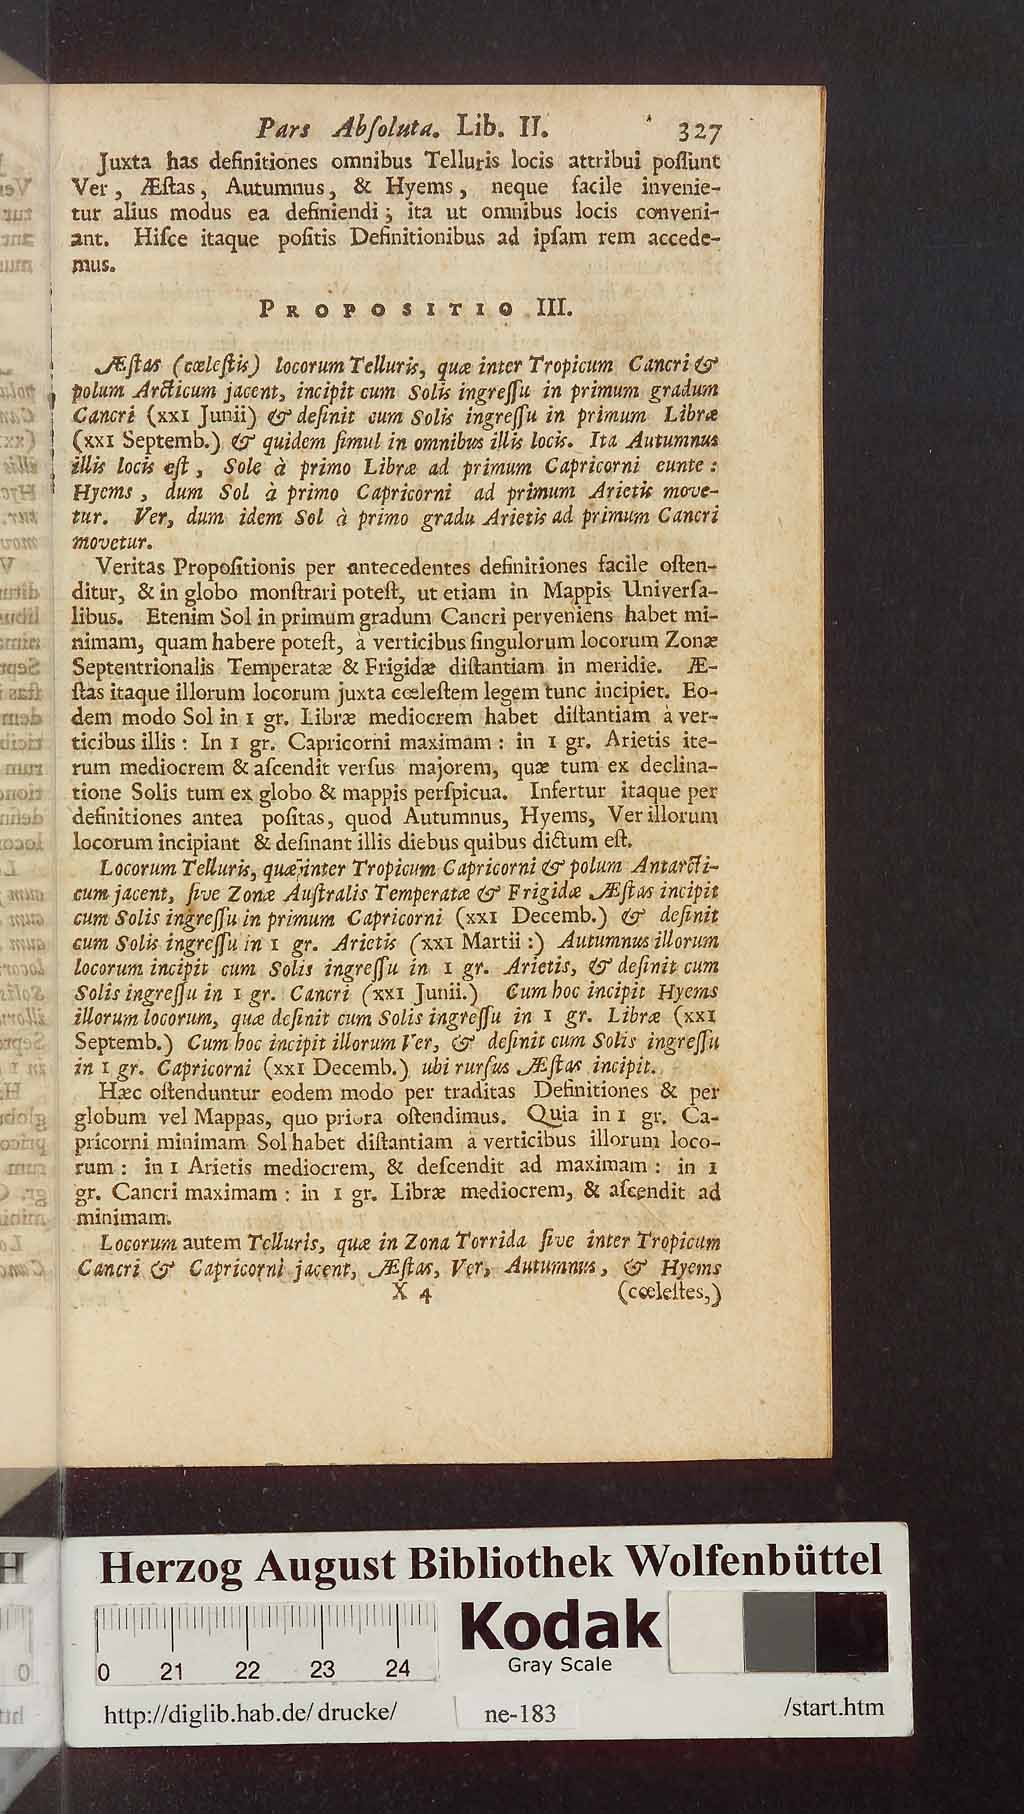 Pars Abſoluta. Lib. II. 327
Juxta has definitiones omnibus Telluris locis attribui poſſunt
Ver, Æſtas, Autumnus, & Hyems, neque facile invenie-
tur alius modus ea definiendi; ita ut omnibus locis conveni-
ant. Hiſce itaque poſitis Definitionibus ad ipſam rem accede-
mus.
PROPOSITIO III.
Æſtas (cœleſtis) locorum Telluris, quæ inter Tropicum Cancri &
polum Arcticum jacent, incipit cum Solis ingreſſu in primum gradum
Cancri (XXI Junii) & definit cum Solis ingreſſu in primum Libræ
(XXI Septemb.) & quidem ſimul in omnibus illis locis. Ita Autumnus
illis locis eſt, Sole à primo Libræ ad primum Capricorni eunte:
Hyems, dum Sol à primo Capricorni ad primum Arietis move-
tur. Ver, dum idem Sol à primo gradu Arietis ad primum Cancri
movetur.
Veritas Propoſitionis per antecedentes definitiones facile oſten-
ditur, & in globo monſtrari poteſt, ut etiam in Mappis Univerſa-
libus. Etenim Sol in primum gradum Cancri perveniens habet mi-
nimam, quam habere poteſt, à verticibus ſingulorum locorum Zonæ
Septentrionalis Temperatæ & Frigidæ diſtantiam in meridie. Æ-
ſtas itaque illorum locorum juxta cœleſtem legem tunc incipiet. Eo-
dem modo Sol in 1 gr. Libræ mediocrem habet diſtantiam à ver-
ticibus illis: In 1 gr. Capricorni maximam: in 1 gr. Arietis ite-
rum mediocrem & aſcendit verſus majorem, quæ tum ex declina-
tione Solis tum ex globo & mappis perſpicua. Infertur itaque per
definitiones antea poſitas, quod Autumnus, Hyems, Ver illorum
locorum incipiant & definant illis diebus quibus dictum eſt.
Locorum Telluris, quæ inter Tropicum Capricorni & polum Antarcti-
cum jacent, ſive Zonæ Auſtralis Temperatæ & Frigidæ Æſtas incipit
cum Solis ingreſſu in primum Capricorni (XXI Decemb.) & definit
cum Solis ingreſſu in 1 gr. Arietis (XXI Martii:) Autumnus illorum
locorum incipit cum Solis ingreſſu in 1 gr. Arietis, & definit cum
Solis ingreſſu in 1 gr. Cancri (XXI Junii.) Cum hoc incipit Hyems
illorum locorum, quæ definit cum Solis ingreſſu in 1 gr. Libræ (XXI
Septemb.) Cum hoc incipit illorum Ver, & definit cum Solis ingreſſu
in 1 gr. Capricorni (XXI Decemb.) ubi rurſus Æſtas incipit.
Hæc oſtenduntur eodem modo per traditas Definitiones & per
globum vel Mappas, quo priora oſtendimus. Quia in 1 gr. Ca-
pricorni minimam Sol habet diſtantiam à verticibus illorum loco-
rum: in 1 Arietis mediocrem, & deſcendit ad maximam: in 1
gr. Cancri maximam: in 1 gr. Libræ mediocrem, & aſcendit ad
minimam.
Locorum autem Telluris, quæ in Zona Torrida ſive inter Tropicum
Cancri & Capricorni jacent, Æſtas, Ver, Autumnus, & Hyems
X 4 (cœleſtes,)
Herzog August Bibliothek Wolfenbüttel
Kodak
Gray Scale
0 21 22 23 24
http://diglib.hab.de/drucke/ ne-183 /start.htm